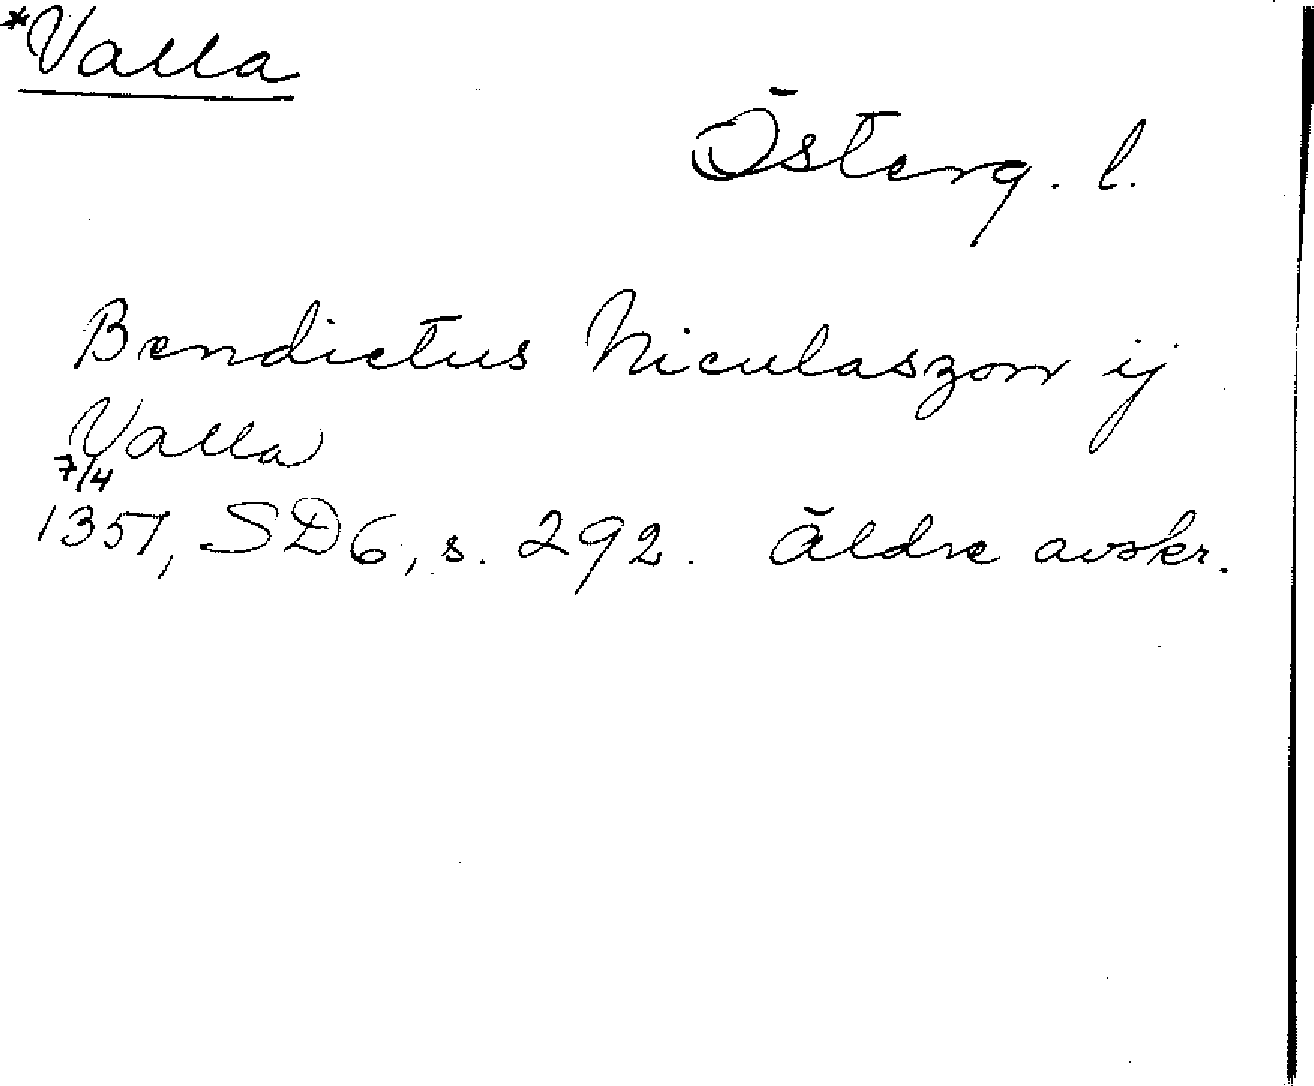 *Valla
Österg. l.
Bendictus Niculaszon ij
Valla
7/4
1351, SD6, s. 292. Äldre avskr.